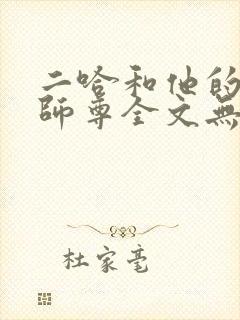 二哈和他的
師尊全文無
杜家毫